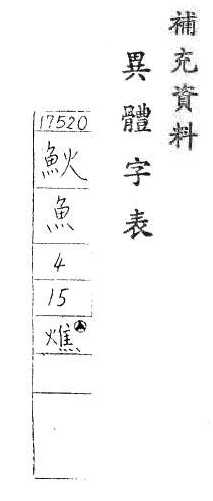 補充資料
異體字表
17520
⿰魚火
魚
4
15
燋